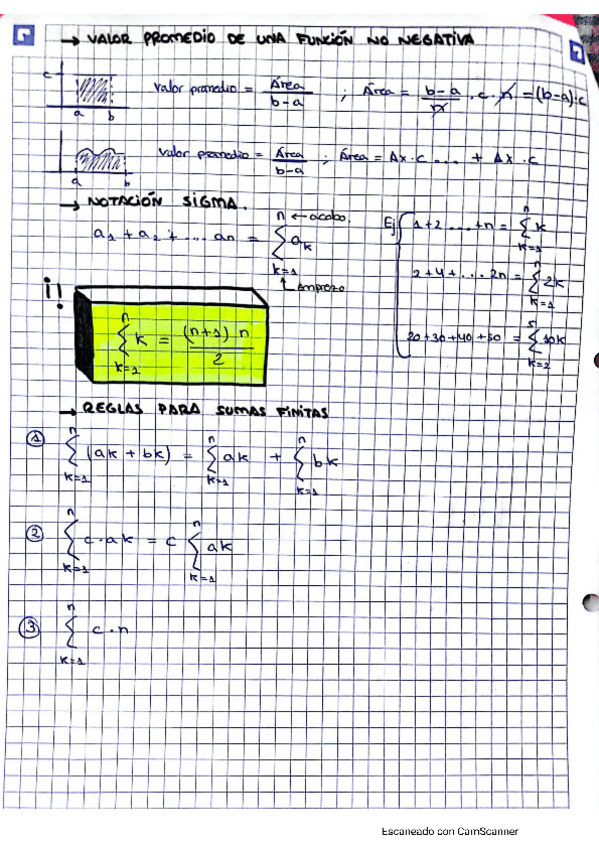 → VALOR PROMEDIO DE UNA FUNCIÓN NO NEGATIVA
c
a b
Valor promedio = Área / b-a ; Área = b-a / n · c · n = (b-a)·c
a b
Valor promedio = Área / b-a ; Área = Δx · c .... + Δx · c
→ NOTACIÓN SIGMA.
a1 + a2 + .... an = n ← acabo. Σ ak k=1 ↑ empiezo
Ej 1+2 ....+n = n Σ k k=1
2+4+ .... 2n = n Σ 2k k=1
20+30+40+50 = 5 Σ 10k k=2
¡!
n Σ k k=1 = (n+1) n / 2
→ REGLAS PARA SUMAS FINITAS
① n Σ k=1 (ak + bk) = n Σ k=1 ak + n Σ k=1 bk
② n Σ k=1 c·ak = c n Σ k=1 ak
③ n Σ k=1 c·n
Escaneado con CamScanner